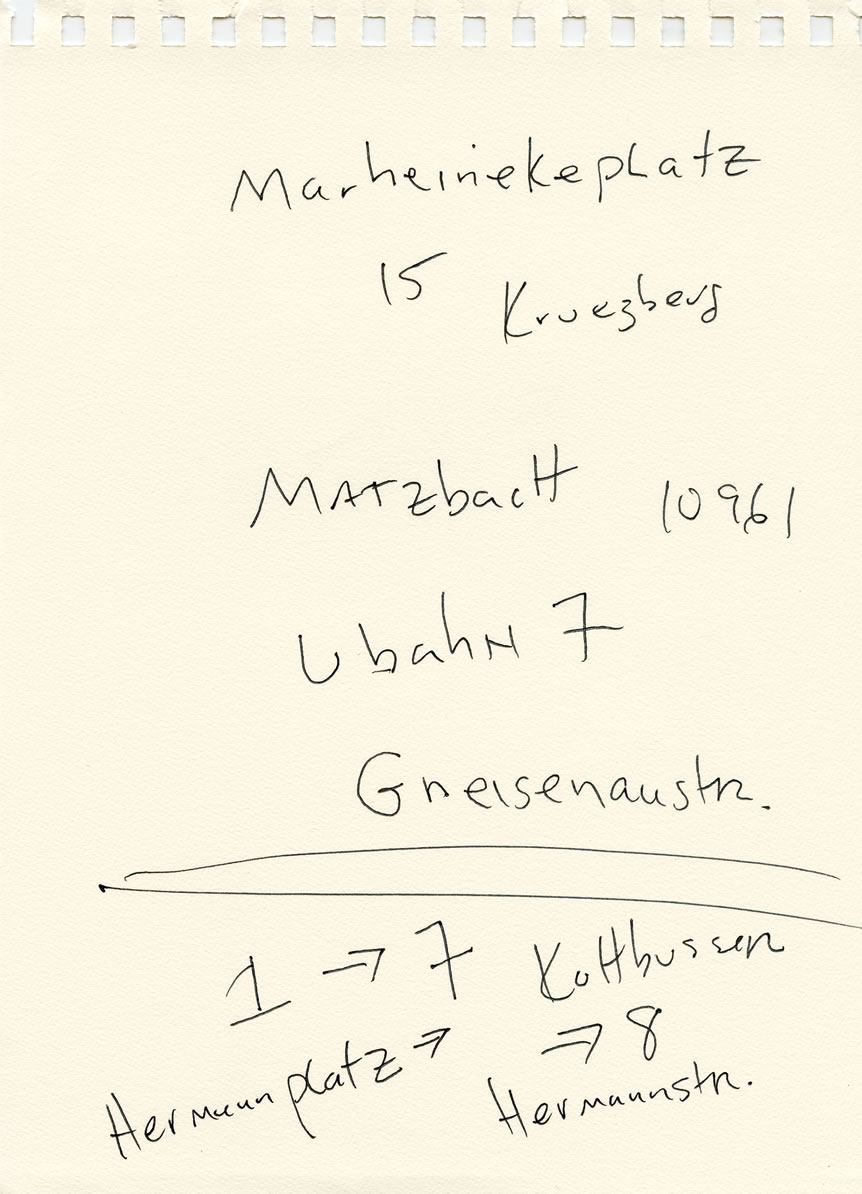 Marheinekeplatz
15 Kruezberg
MATzbacH 10961
UbahN 7
Gneisenaustr.
1 ⇒ 7 Kottbusser
Hermannplatz ⇒ ⇒ 8
Hermannstr.